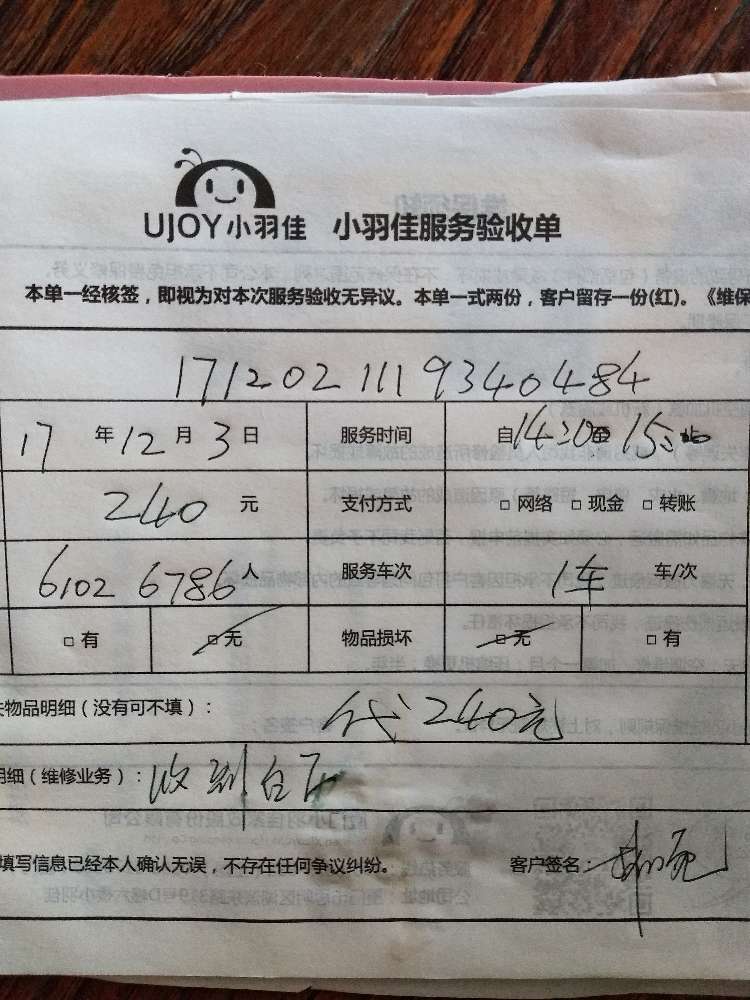 UJOY小羽佳 小羽佳服务验收单
本单一经核签，即视为对本次服务验收无异议。本单一式两份，客户留存一份(红)。《维保
1712021119340484
17 年 12 月 3 日 服务时间 自 14:20 至 15:
240 元 支付方式 □ 网络 □ 现金 □ 转账
6102 6786 人 服务车次 1车 车/次
□ 有 □ 无 物品损坏 □ 无 □ 有
失物品明细（没有可不填）： 代 240元
明细（维修业务）： 收到
填写信息已经本人确认无误，不存在任何争议纠纷。 客户签名：